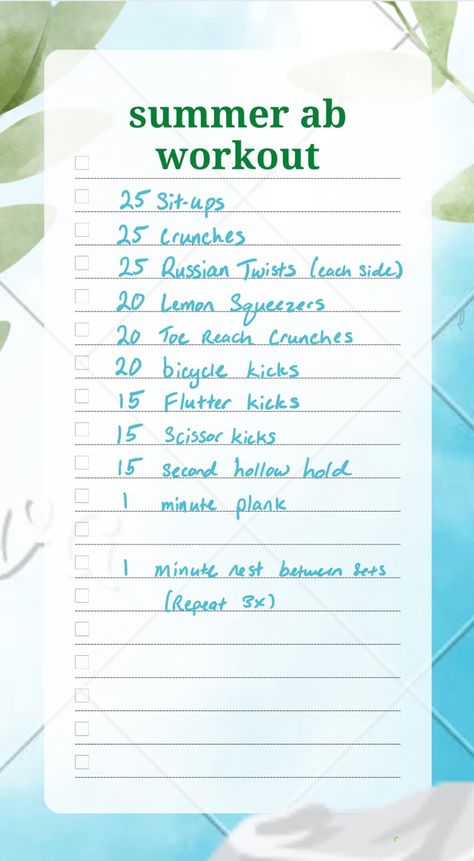 summer ab
workout
25 Sit-ups
25 Crunches
25 Russian Twists (each side)
20 Lemon Squeezers
20 Toe Reach Crunches
20 bicycle kicks
15 Flutter kicks
15 Scissor kicks
15 second hollow hold
1 minute plank
1 minute rest between sets
(Repeat 3x)